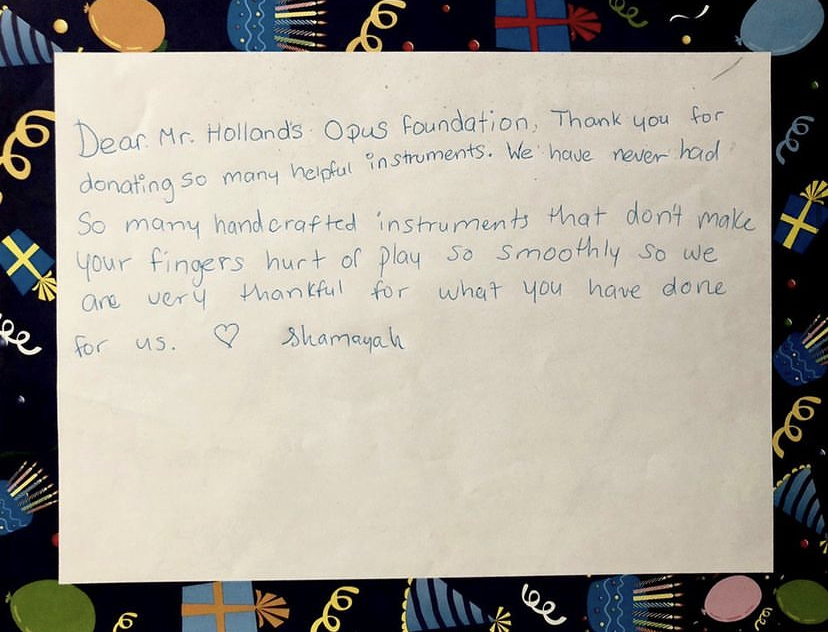 Dear Mr. Holland's Opus foundation, Thank you for
donating so many helpful instruments. We have never had
So many handcrafted instruments that don't make
your fingers hurt or play so smoothly so we
are very thankful for what you have done
for us. ♡ Shamayah